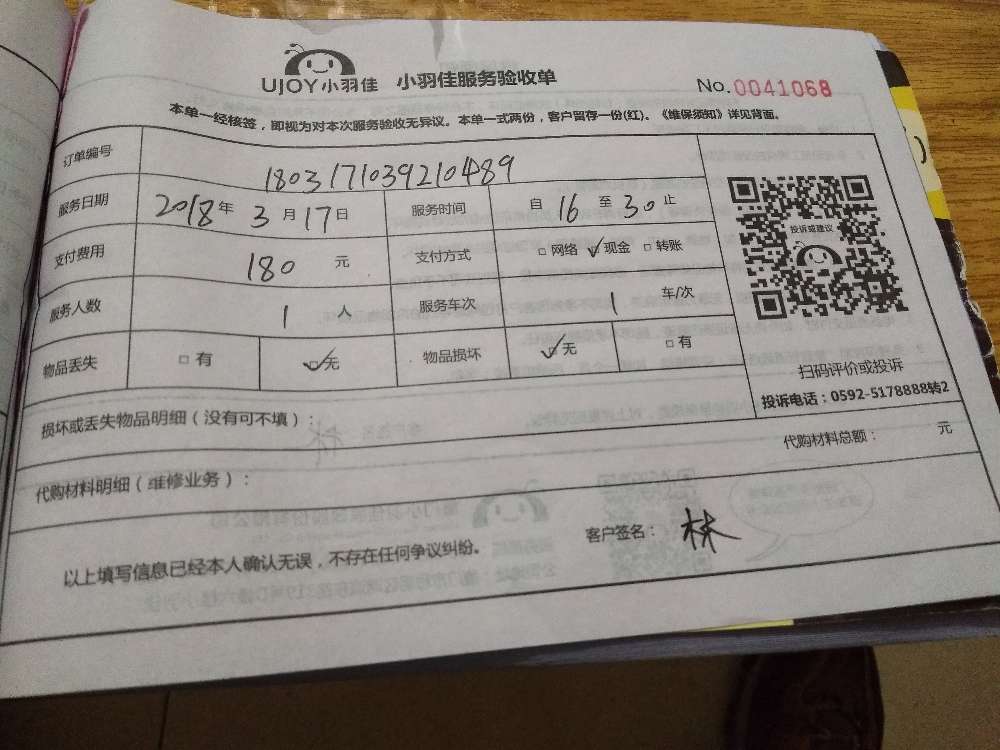 UJOY小羽佳 小羽佳服务验收单 No.0041068
本单一经核签，即视为对本次服务验收无异议。本单一式两份，客户留存一份(红)。《维保须知》详见背面。
订单编号 1803171039210489
服务日期 2018年3月17日 服务时间 自16至30止
支付费用 180元 支付方式 □网络 ☑现金 □转账
服务人数 1人 服务车次 1车/次
物品丢失 □有 ☑无 物品损坏 ☑无 □有
投诉或建议
扫码评价或投诉
投诉电话：0592-5178888转2
损坏或丢失物品明细（没有可不填）：
代购材料明细（维修业务）： 代购材料总额： 元
以上填写信息已经本人确认无误，不存在任何争议纠纷。 客户签名：林